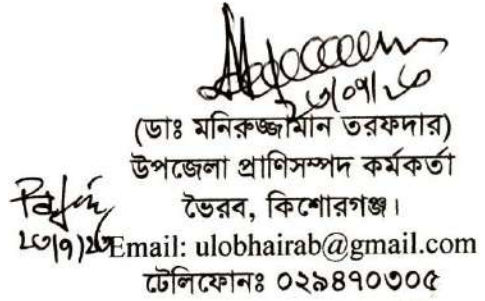 ২৩/০৭/২৩
(ডাঃ মনিরুজ্জামান তরফদার)
উপজেলা প্রাণিসম্পদ কর্মকর্তা
ভৈরব, কিশোরগঞ্জ।
Email: ulobhairab@gmail.com
টেলিফোনঃ ০২৯৪৭০৩০৫